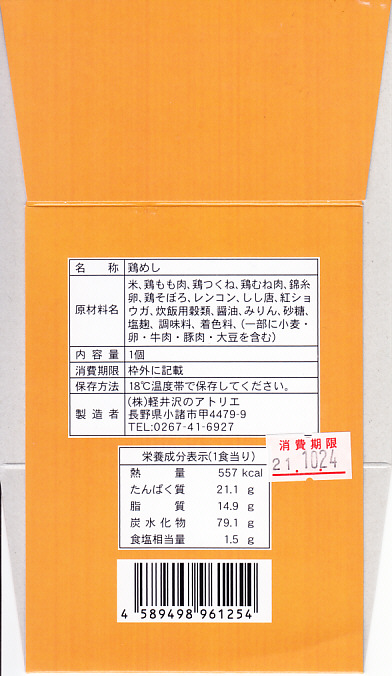 名称 鶏めし
原材料名 米、鶏もも肉、鶏つくね、鶏むね肉、錦糸
卵、鶏そぼろ、レンコン、しし唐、紅ショ
ウガ、炊飯用穀類、醤油、みりん、砂糖、
塩麹、調味料、着色料、(一部に小麦・
卵・牛肉・豚肉・大豆を含む)
内容量 1個
消費期限 枠外に記載
保存方法 18℃温度帯で保存してください。
製造者 (株)軽井沢のアトリエ
長野県小諸市甲4479-9
TEL:0267-41-6927
消費期限
21.1024
栄養成分表示(1食当り)
熱量 557 kcal
たんぱく質 21.1 g
脂質 14.9 g
炭水化物 79.1 g
食塩相当量 1.5 g
4 589498 961254